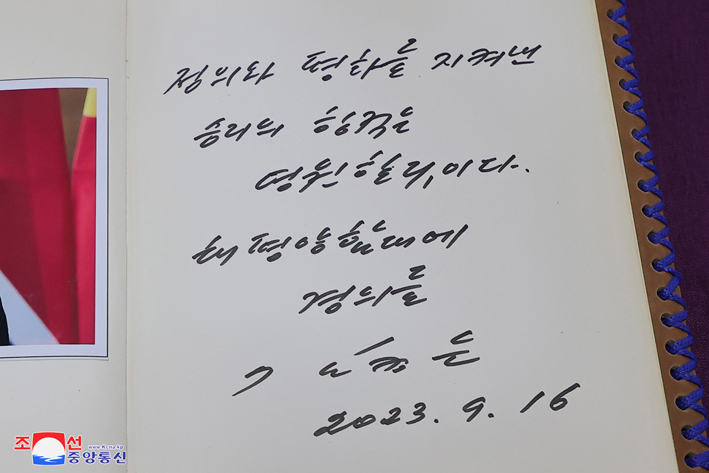 정의와 평화를 지켜낸
승리의 항적은
영원하리, 이다.
태평양함대에
경의를
김정은
2023. 9. 16
조선
www.kcna.kp
중앙통신